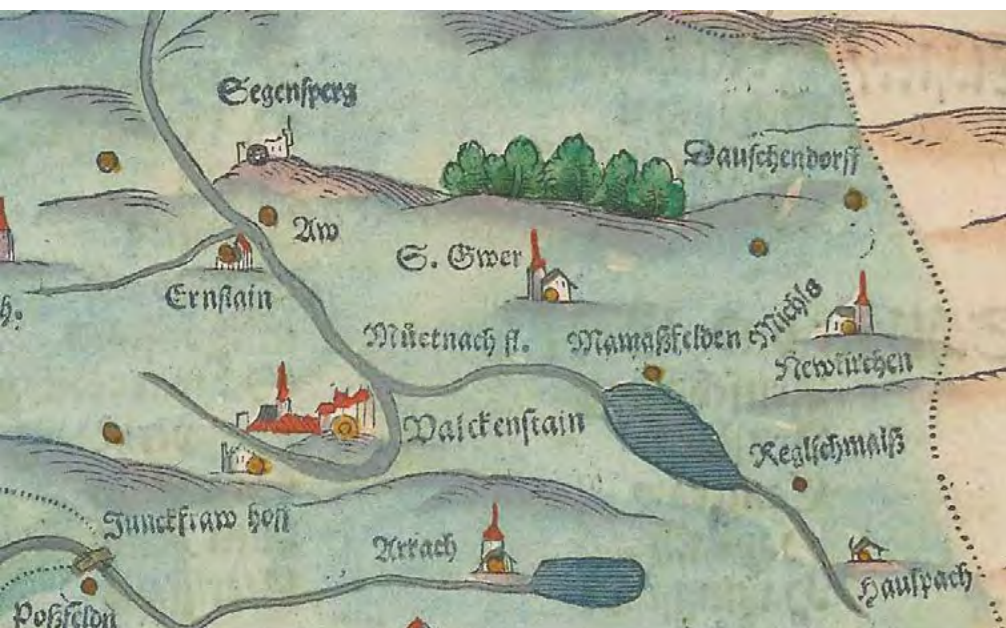 Segensperg
Dauschendorff
Aw
S. Gwer
Ernstain
h:
Michls
Müetnach fl.
Mamaßfelden
Newkirchen
Valckenstain
Reglschmaiß
Junckfraw hoff
Arrach
Hauspach
Poßfeldn